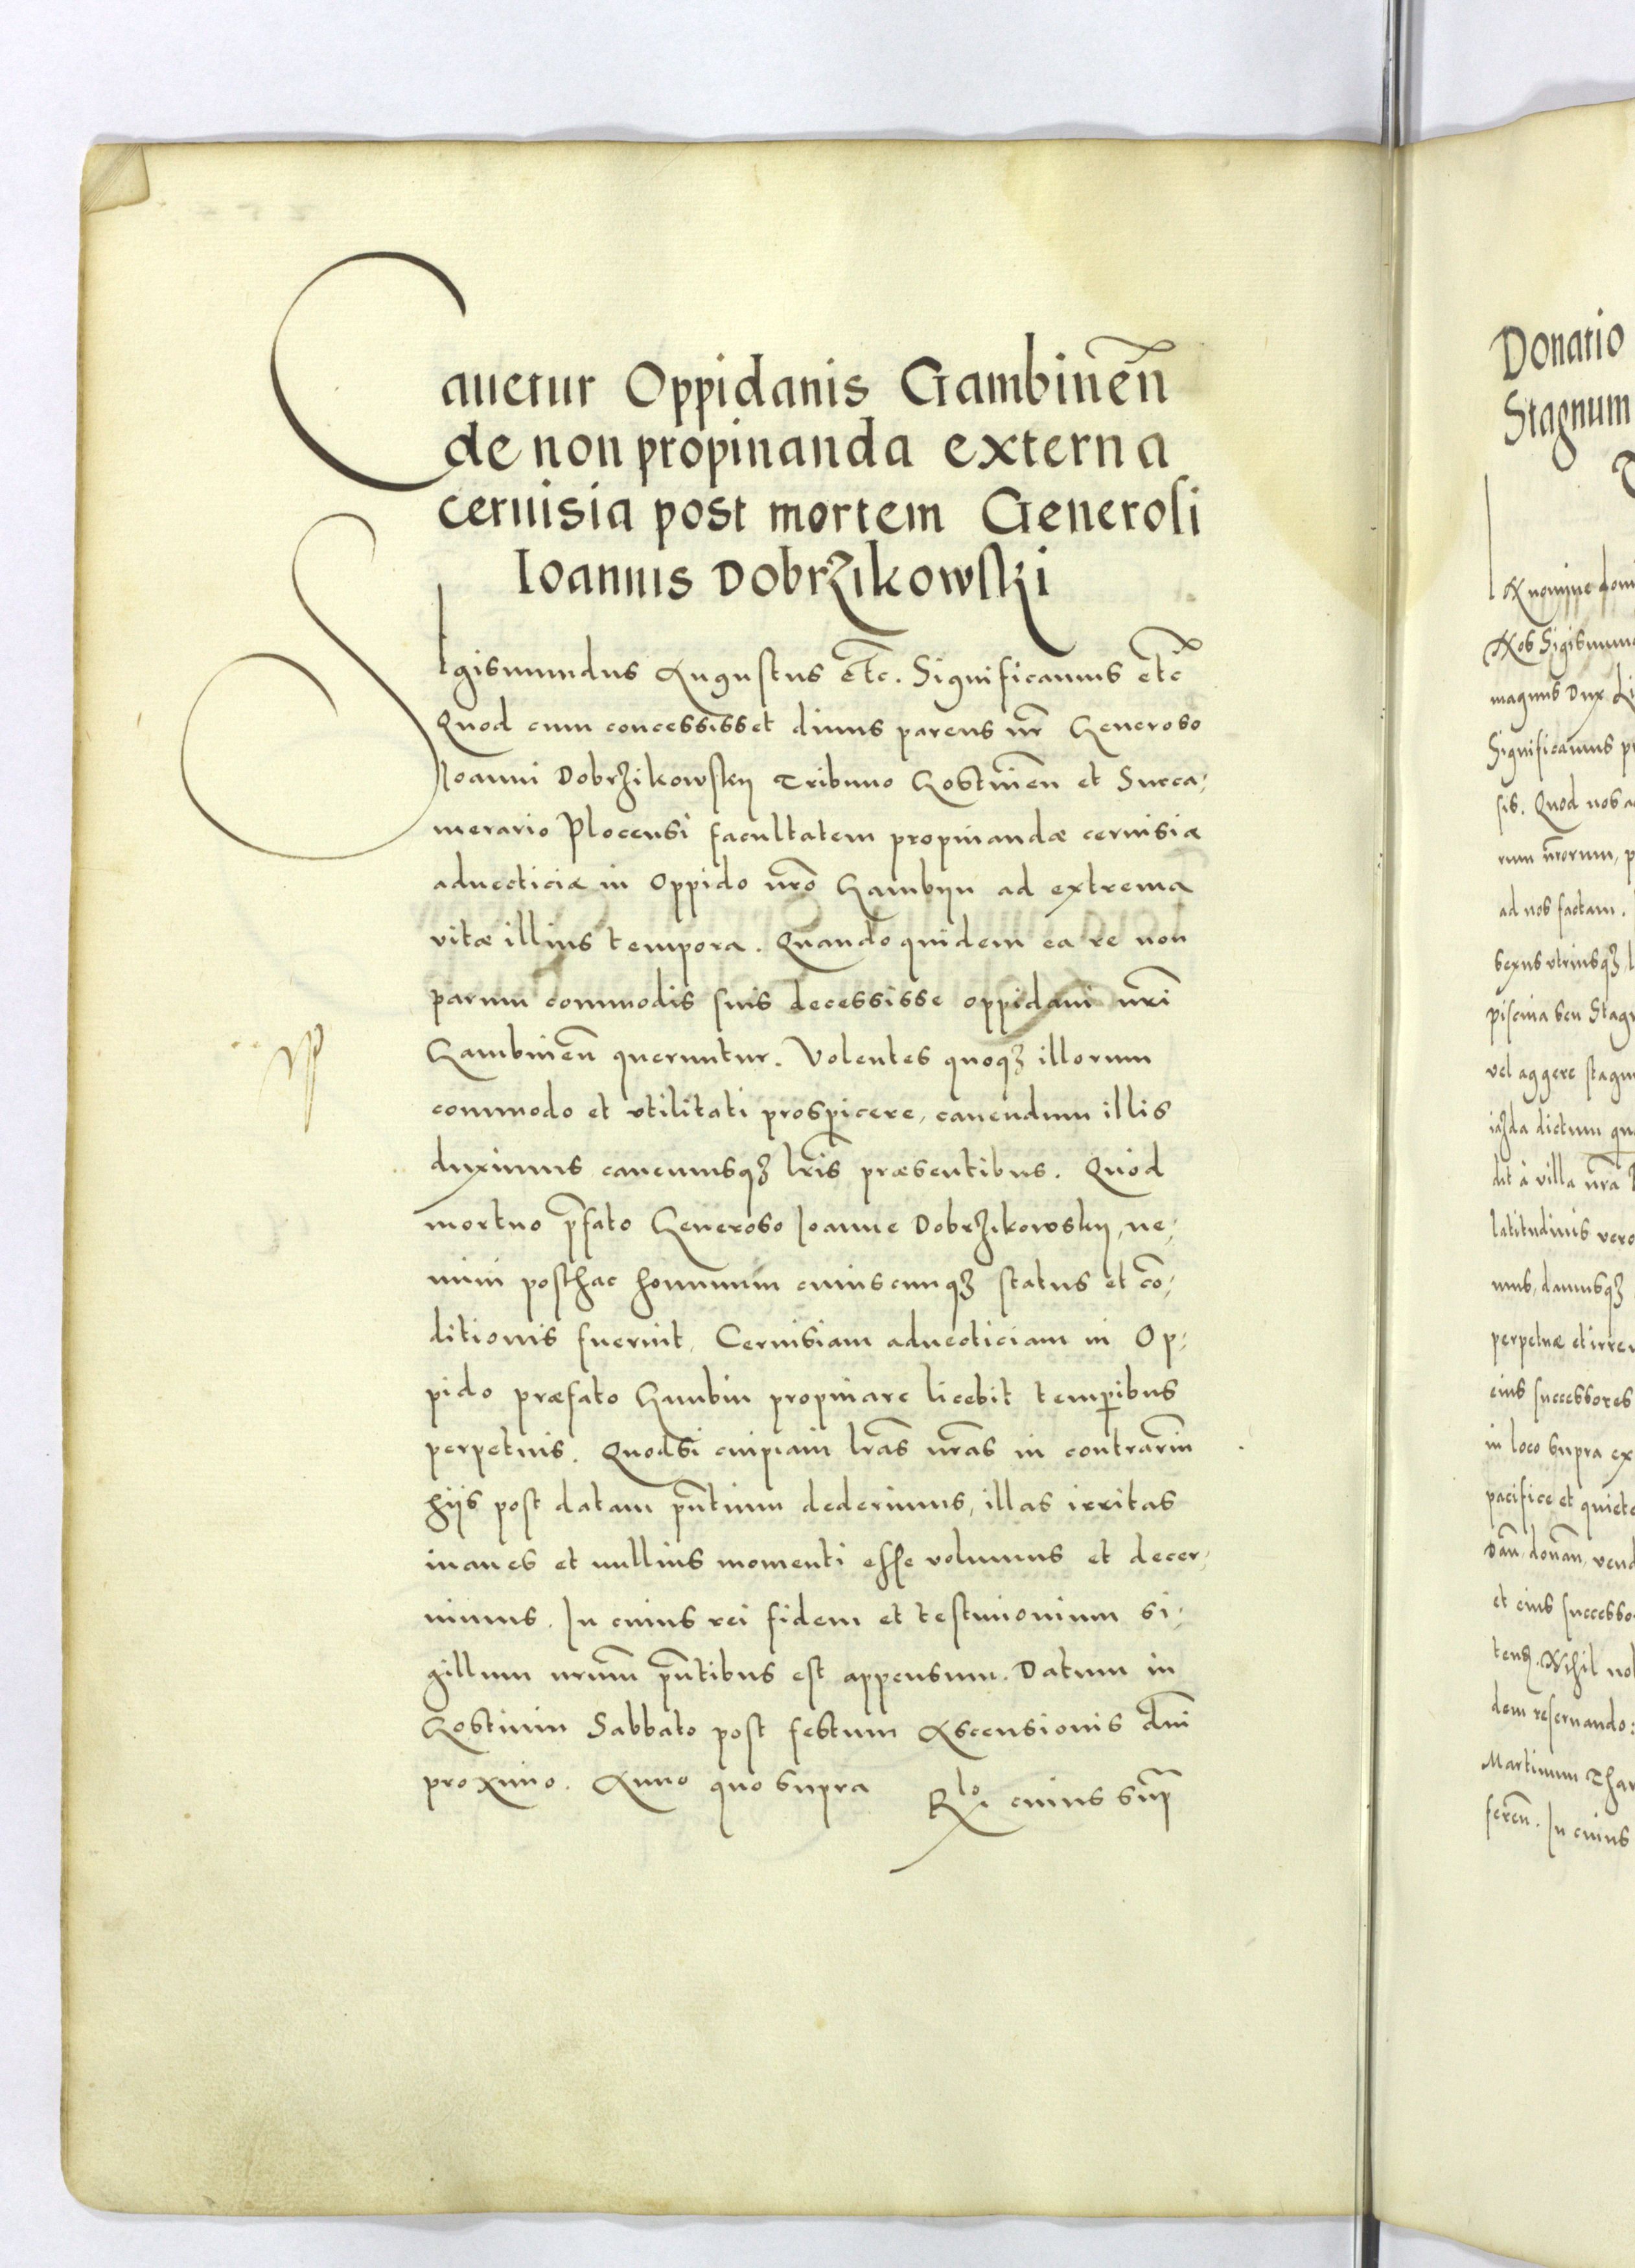 Cauetur Oppidanis Gambinen̄
de non propinanda externa
ceruisia post mortem Generosi
Ioannis Dobrzikowski
Sigismundus Augustus etc̄. Significamus etc̄
Quod cum concessisset diuus parens nr̄ Generoso
Joanni Dobrzikowskij Tribuno Gostinen̄ et Succa-
merario Plocensi facultatem propinandæ ceruisiæ
aduecticiæ in Oppido nr̄o Gambijn ad extrema
vitæ illius tempora. Quandoquidem ea re non
parum commodis suis decessisse oppidani nr̄i
Gambinen̄ queruntur. Volentes quoqꝫ illorum
commodo et vtilitati prospicere, cauendum illis
duximus cauemusqꝫ lr̄is præsentibus. Quòd
mortuo p̄fato Generoso Joanne Dobrzikowskij, ne-
mini posthac hominum cuiuscunqꝫ status et cō-
ditionis fuerint, Ceruisiam aduecticiam in Op-
pido præfato Gambin propinare licebit temp̄ibus
perpetuis. Quodsi cuipiam lr̄as nr̄as in contrariū
hijs post datam pn̄tium dederimus, illas irritas
inanes et nullius momenti esse volumus et decer-
nimus. In cuius rei fidem et testimonium si-
gillum nrūm pn̄tibus est appensum. Datum in
Gostinin Sabbato post festum Ascensionis Dn̄i
proximo. Anno quo supra
Rlo. cuius sup̄
Donatio
Stagnum
nomine dom
Nos Sigismun
magnus Dux Li
Significamus p
sis. Quod nos a
rum nr̄orum, p
ad nos factam.
sexus vtriusqꝫ, l
piscina seu Stag
vel aggere stagn
iazda dictum qu
dit à villa nr̄a
latitudinis vero
mus, damusqꝫ
perpetuæ et irre
eius successores
in loco supra ex
pacifice et quiete
Dan̄, donan̄, vend
et eius successo
ten. Nihil no
dem reseruando:
Martinum Thar
feren̄. In cuius